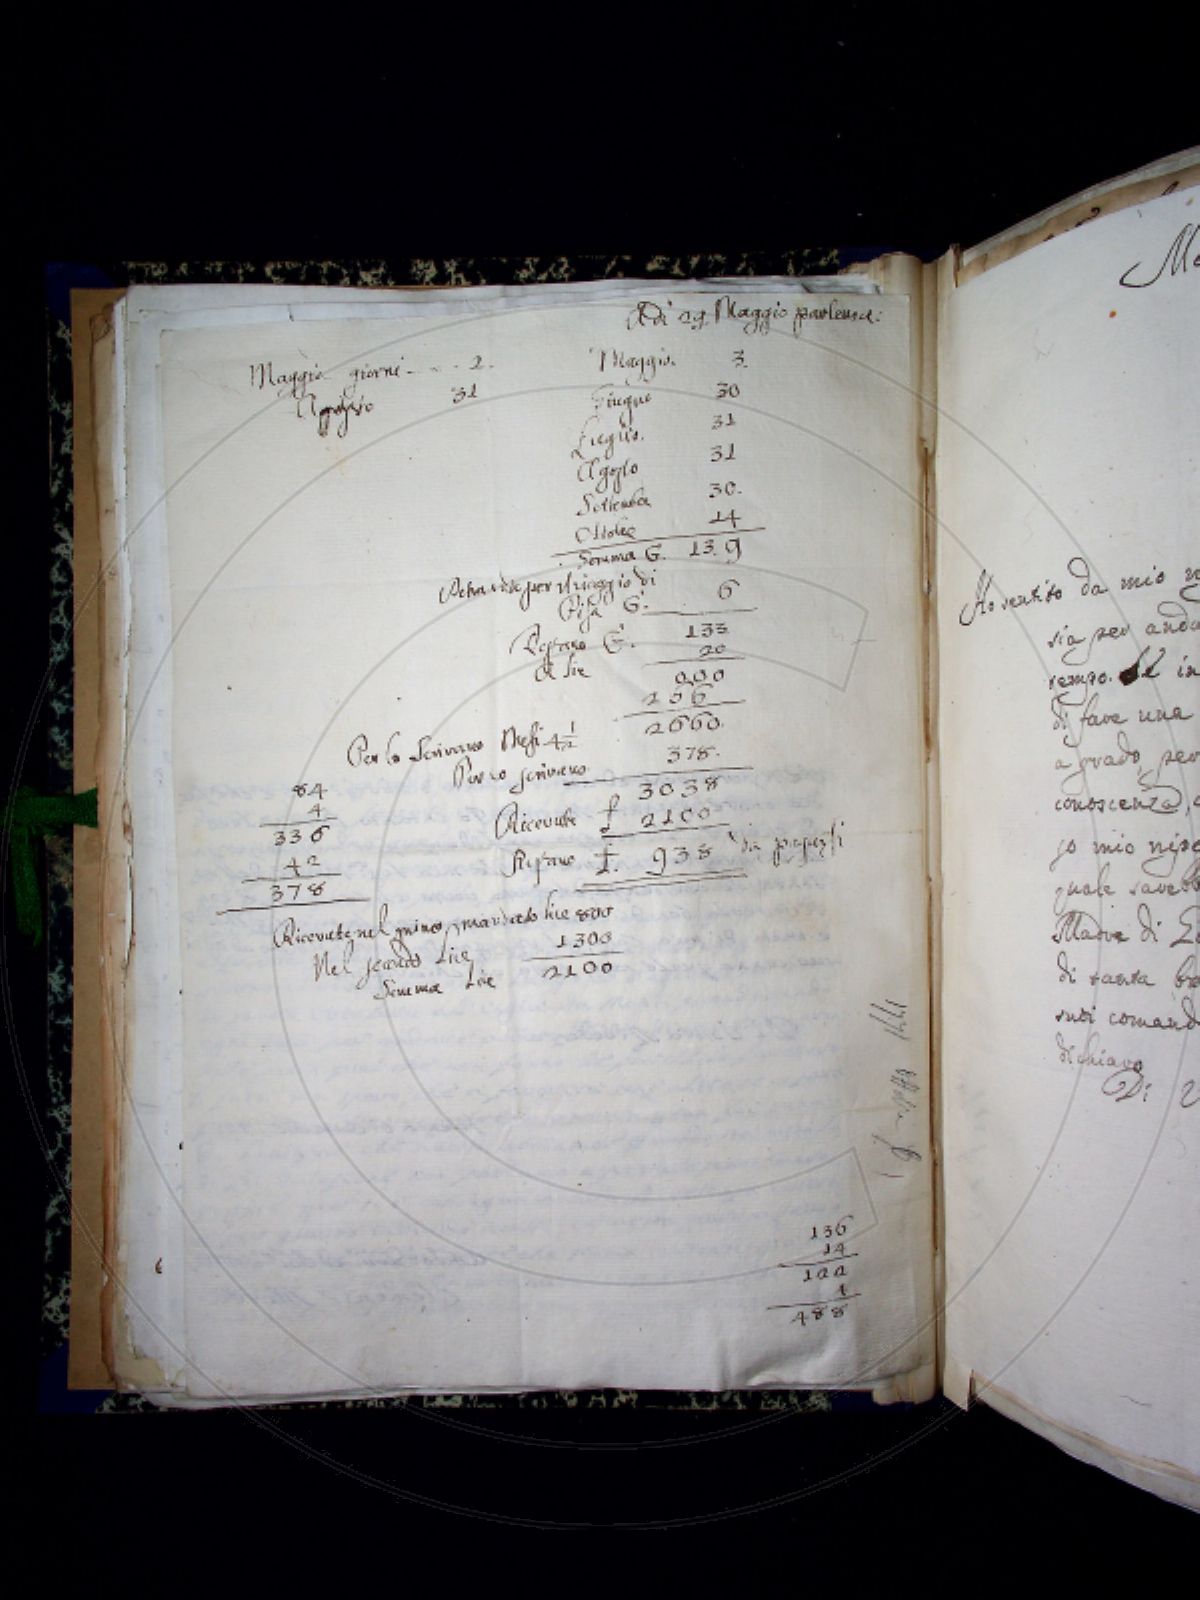 Adi 29 Maggio
Maggio giorni - - - 2.
31
Maggio. 3
Giugno 30
Luglio. 31
Agosto 31
Settembre 30.
Ottobre 14
Somma G. 13.9
per il viaggio di
Pisa G. 6
Restano G. 133
A lire 20
000
266
2660.
Per lo Scrivano Mesi 4 1/2
378.
Per lo scrivano
3038
Ricevute £ 2100
Restano £. 938 da pagarsi
84
4
336
42
378
Ricevute nel primo mandato lire 800
Nel secondo Lire 1300
Somma Lire 2100
136
14
122
4
488
Ho sentito da mio
sia per
tempo. Il in
di fare una
a grado per
conoscenza,
jo mio
quale
Madre di
di tanta
suoi comand
dichiaro
Di V